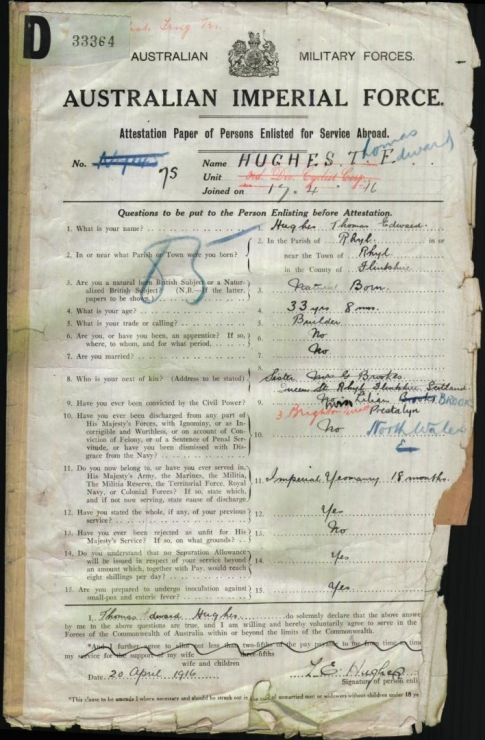 D
33364
AUSTRALIAN MILITARY FORCES.
AUSTRALIAN IMPERIAL FORCE.
Attestation Paper of Persons Enlisted for Service Abroad.
No. 75 Name HUGHES. T. E. Thomas Edward
Unit 3rd. Div. Cyclist Corp.
Joined on 17. 4. 16
Questions to be put to the Person Enlisting before Attestation.
1. What is your name? 1. Hughes Thomas Edward
2. In or near what Parish or Town were you born? 2. In the Parish of Rhyl in or
near the Town of Rhyl
in the County of Flintshire
3. Are you a natural born British Subject or a Natu-
ralized British Subject? (N.B.—If the latter,
papers to be shown) 3. Natural Born.
4. What is your age? 4. 33 yrs 8 mos.
5. What is your trade or calling? 5. Builder
6. Are you, or have you been, an apprentice? If so,
where, to whom, and for what period, 6. No
7. Are you married? 7. No
8. Who is your next of kin? (Address to be stated) 8. Sister Mrs G Brookes
Queen St Rhyl Flintshire Scotland
Lilian BROOK
3 Brighton Prestatyn
North Wales
9. Have you ever been convicted by the Civil Power? 9.
10. Have you ever been discharged from any part of
His Majesty's Forces, with Ignominy, or as In-
corrigible and Worthless, or on account of Con-
viction of Felony, or of a Sentence of Penal Ser-
vitude, or have you been dismissed with Dis-
grace from the Navy? 10. No
11. Do you now belong to, or have you ever served in,
His Majesty's Army, the Marines, the Militia,
The Militia Reserve, the Territorial Force, Royal
Navy, or Colonial Forces? If so, state which,
and if not now serving, state cause of discharge 11. Imperial Yeomanry 18 months.
12. Have you stated the whole, if any, of your previous
service? 12. Yes
13. Have you ever been rejected as unfit for His
Majesty's Service? If so, on what grounds? 13. No
14. Do you understand that no Separation Allowance
will be issued in respect of your service beyond
an amount which, together with Pay, would reach
eight shillings per day? 14. Yes
15. Are you prepared to undergo inoculation against
small-pox and enteric fever? 15. Yes.
I, Thomas Edward Hughes do solemnly declare that the above answe
by me to the above questions are true, and I am willing and hereby voluntarily agree to serve in the
Forces of the Commonwealth of Australia within or beyond the limits of the Commonwealth.
*And I further agree to allot not less than two-fifths of the pay payable to me from time to time
three-fifths
my service for the support of my wife
wife and children
Date 20 April 1916 T. E. Hughes
Signature of person enli
*This clause to be amended where necessary and should be struck out in the case of unmarried men or widowers without children under 18 ye